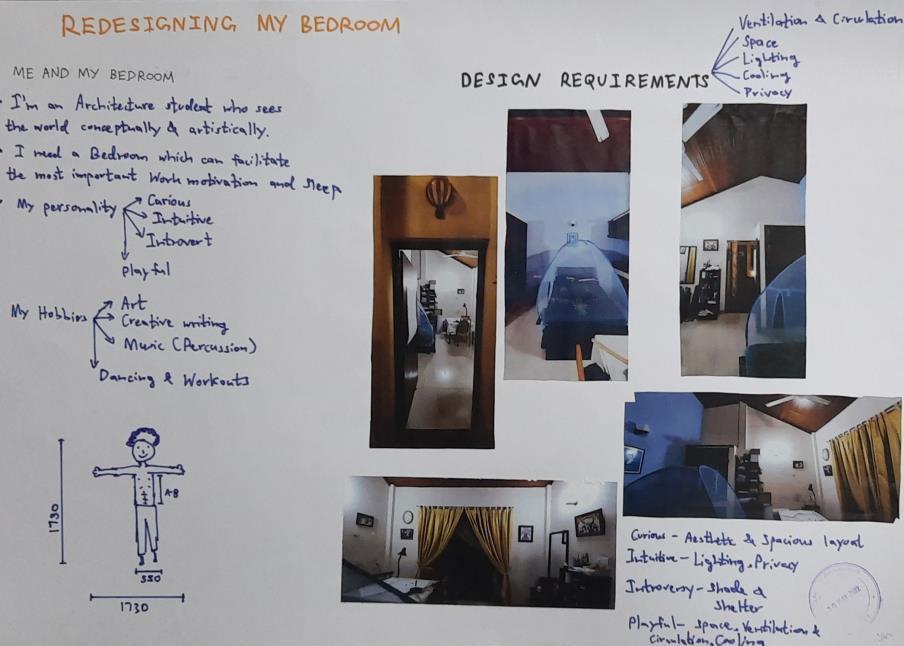 REDESIGNING MY BEDROOM
ME AND MY BEDROOM
• I'm an Architecture student who sees
the world conceptually & artistically.
• I need a Bedroom which can facilitate
the most important work motivation and sleep
• My personality
Curious
Intuitive
Introvert
Playful
My Hobbies
Art
Creative writing
Music (Percussion)
Dancing & Workouts
1730
550
1730
DESIGN REQUIREMENTS
Ventilation & Circulation
Space
Lighting
Cooling
Privacy
Curious - Aesthetic & Spacious layout
Intuitive - Lighting, Privacy
Introversy - Shade &
Shelter
Playful - Space, Ventilation &
Circulation, Cooling